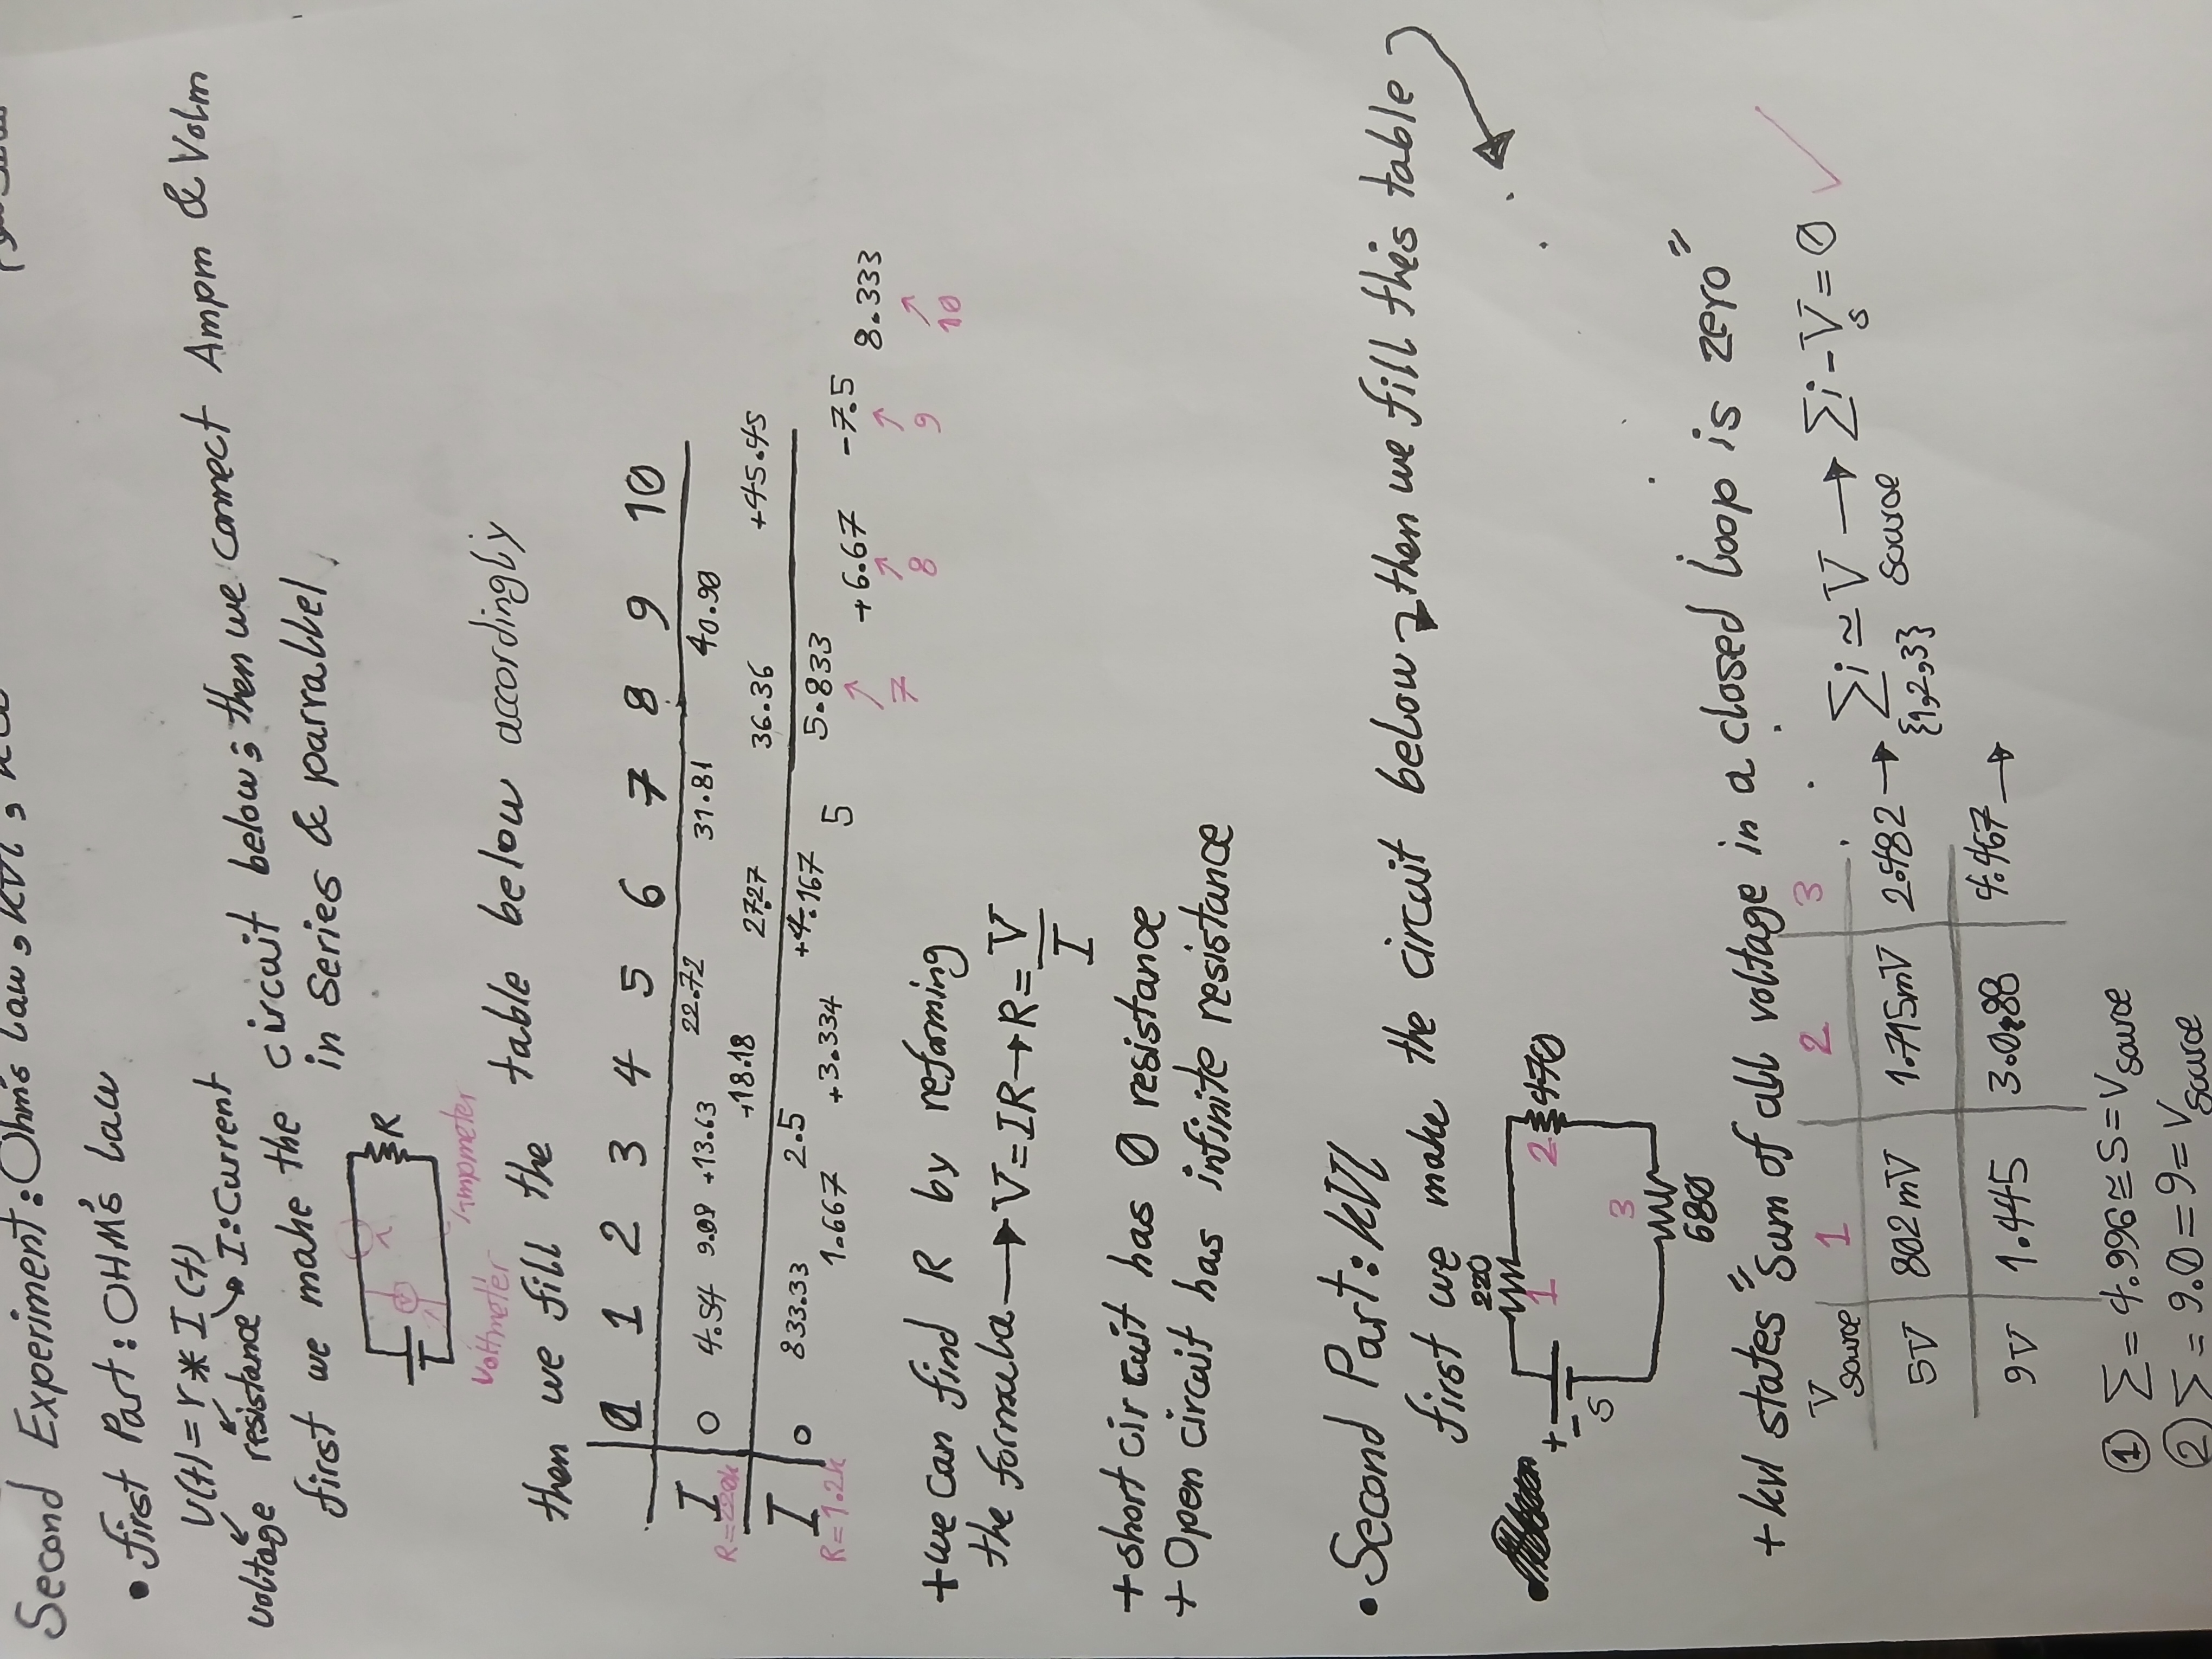 Second Experiment: Ohm's Law, KVL,
• first Part: OHM's law
V(t) = r * I(t)
voltage resistance I: Current
first we make the circuit below, then we connect Ampm & Volm
in series & parrallel
R
voltmeter
then we fill the table below accordingly
0 1 2 3 4 5 6 7 8 9 10
I 0 4.54 9.09 +13.63 +18.18 22.72 27.27 31.81 36.36 40.90 +45.45
I 0 833.33 1.667 2.5 +3.334 +4.167 5 5.833 +6.67 -7.5 8.333
R=1.2k
7 8 9 10
+ we can find R by reforming
the formula → V=IR → R= V
I
+ short circuit has 0 resistance
+ Open circuit has infinite resistance
• Second Part: KVL
first we make the circuit below, then we fill this table
+ - 220
5 1 2 470
3
680
+ kvl states "Sum of all voltage in a closed loop is zero"
V source 1 2 3
5V 802mV 1.715mV 2.482 → Σi ≃ V source → Σi - Vs = 0
{1,2,3}
9V 1.445 3.088 4.467 →
① Σ = 4.996 ≅ 5 = V source
② Σ = 9.0 = 9 = V source